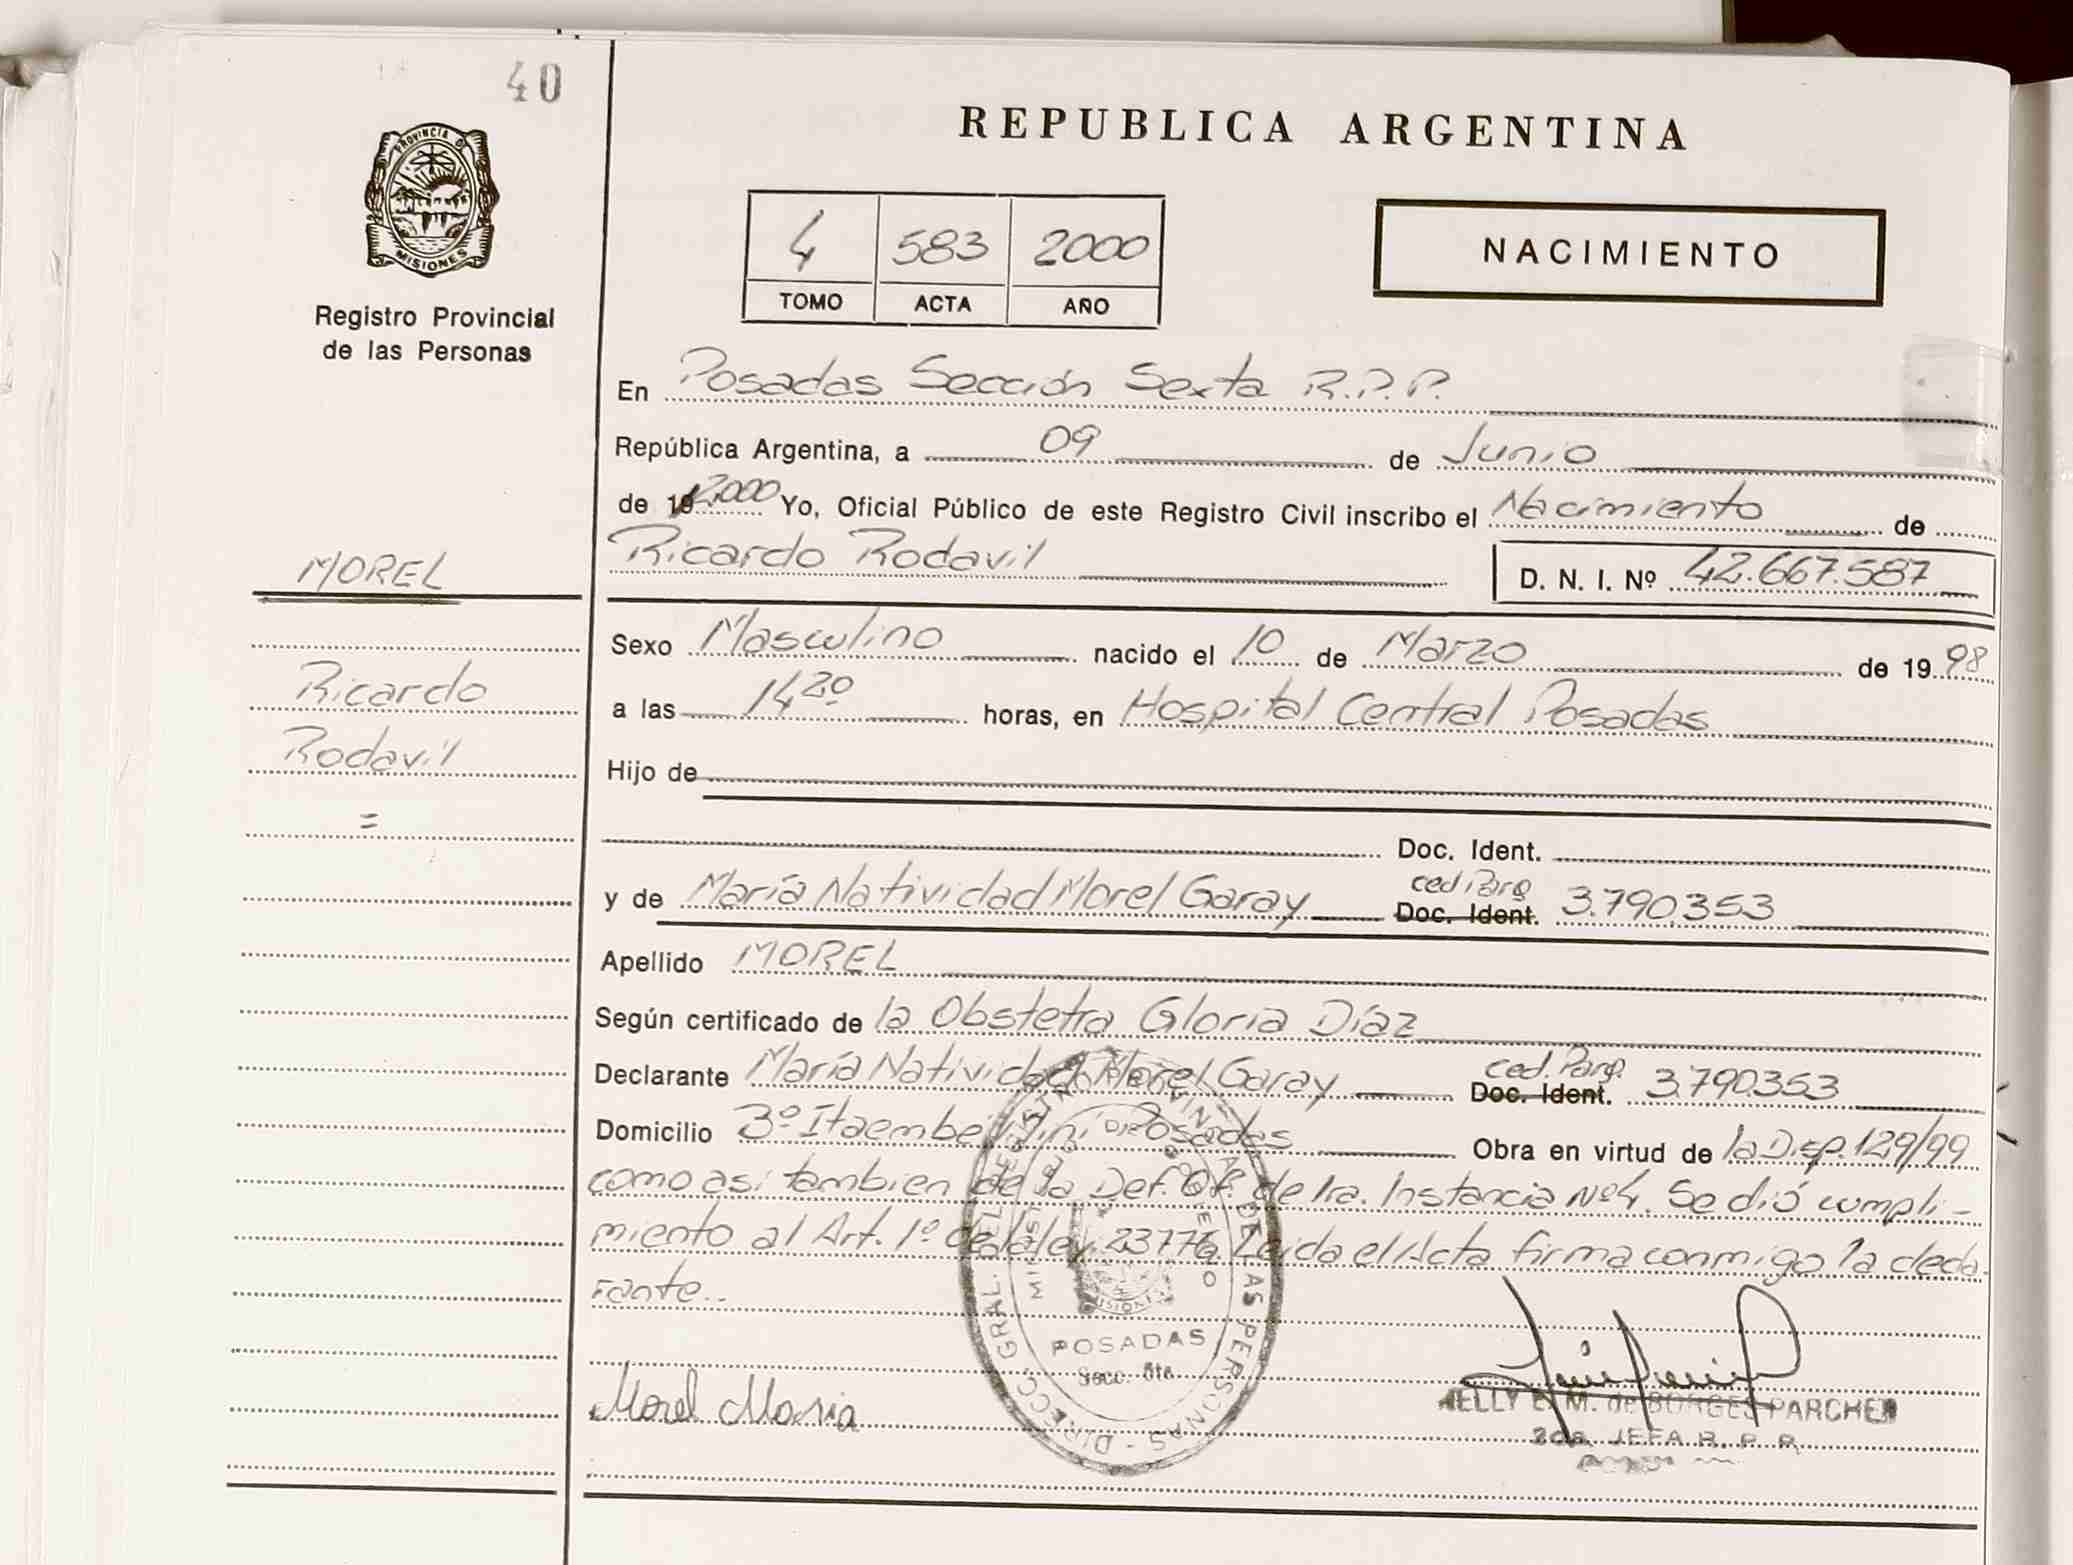 40
PROVINCIA DE
MISIONES
Registro Provincial
de las Personas
REPUBLICA ARGENTINA
4 583 2000
TOMO ACTA AÑO
NACIMIENTO
En Posadas Sección Sexta R.P.P.
República Argentina, a 09 de Junio
de 19 2000 Yo, Oficial Público de este Registro Civil inscribo el Nacimiento de
Ricardo Rodavil D. N. I. Nº 42.667.587
MOREL
Ricardo
Rodavil
=
Sexo Masculino nacido el 10 de Marzo de 1998
a las 14 20 horas, en Hospital Central Posadas
Hijo de
Doc. Ident.
ced. Parg
y de María Natividad Morel Garay Doc. Ident. 3.790.353
Apellido MOREL
Según certificado de la Obstetra Gloria Díaz
ced. Parg.
Declarante María Natividad Morel Garay Doc. Ident. 3.790.353
Domicilio Bº Itaembé Miní Posadas Obra en virtud de la Disp. 129/99
como asi tambien de la Def. Of. de 1ra. Instancia Nº4. Se dió cumpli-
miento al Art. 1º de la ley 23776. Leida el Acta firma conmigo la decla-
rante..
DIRECC. GRAL. DEL REGISTRO PROVINCIAL DE LAS PERSONAS -
MISIONES
POSADAS
Secc. 6ta.
Morel Maria
NELLY E. M. de BORGES PARCHEN
2da. JEFA R. P. P.